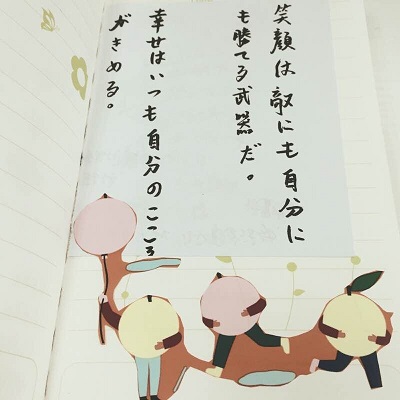 笑顔は敵にも自分に
も勝てる武器だ。
幸せはいつも自分のこころ
がきめる。